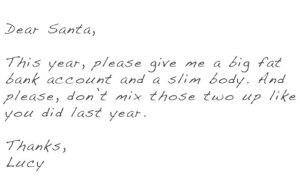 Dear Santa,
This year, please give me a big fat
bank account and a slim body. And
please, don't mix those two up like
you did last year.
Thanks,
Lucy